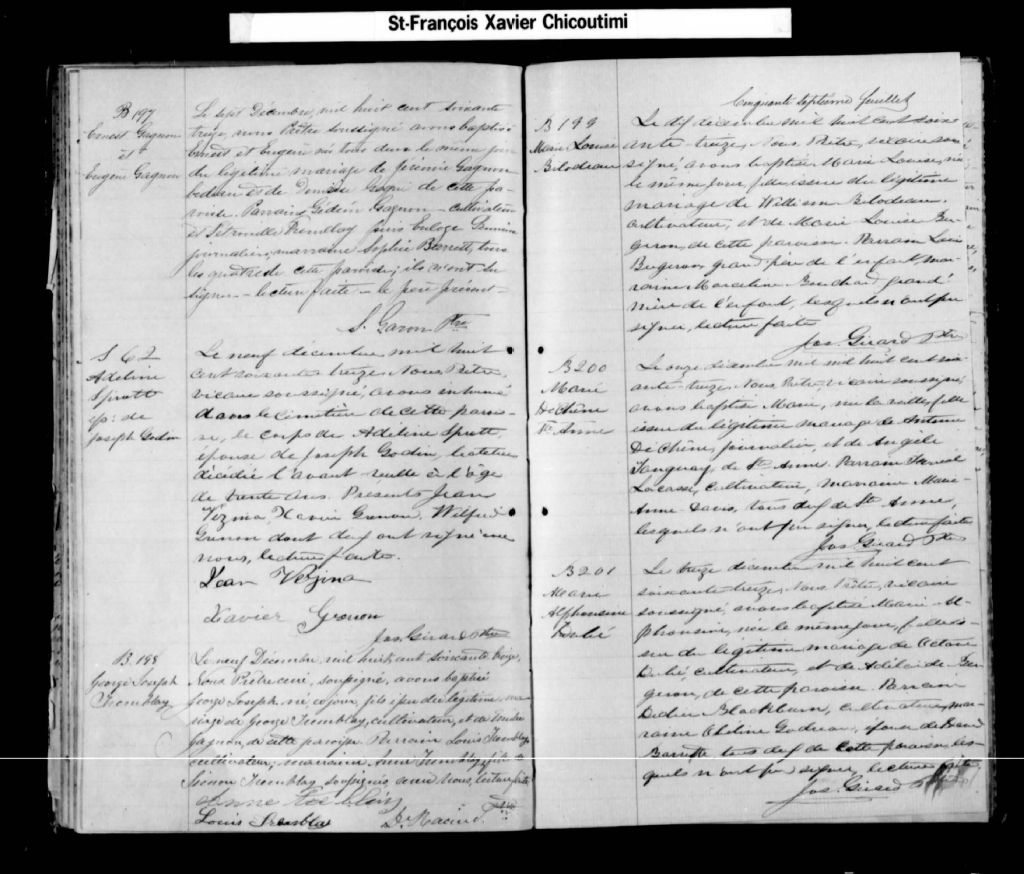 St-François Xavier Chicoutimi
B 197
Ernest Gagnon
et
Eugène Gagnon
Le sept Décembre, mil huit cent soixante
treize, nous Prêtre soussigné avons baptisé
Ernest et Eugène nés tous deux le même jour
du légitime mariage de Jérémie Gagnon
bedeau et de de cette pa-
roisse. Parrains Gédéon Gagnon cultivateur
et Pétronille Tremblay puis Euloge
journalier, marraine Sophie tous
les quatre de cette paroisse; ils n'ont su
signer - lecture faite - le père présent -
S. Garon Ptre
S 62
Adéline
Spratt
ép: de
Joseph Godin
Le neuf décembre, mil huit
cent soixante treize, Nous Prêtre,
vicaire soussigné, avons inhumé
dans le cimetière de cette parois-
se, le corps de Adéline Spratt,
épouse de Joseph Godin,
décédée l'avant veille à l'âge
de trente ans. Présents Jean
Vézina, Xavier Grenon, Wilfrid
Grenon dont deux ont signé avec
nous, lecture faite.
Jean Vézina
Xavier Grenon
Jos. Girard Ptre
B. 198
George Joseph
Tremblay
Le neuf Décembre, mil huit cent soixante treize,
Nous Prêtre curé, soussigné, avons baptisé
George Joseph, né ce jour, fils issu du légitime ma-
riage de George Tremblay, cultivateur, et de
Gagnon, de cette paroisse. Parrain Louis Tremblay,
cultivateur, marraine Anne Tremblay,
Tremblay, soussignés avec nous, lecture faite.
Anne
Louis Tremblay D. Racine Ptre
Cinquante septième feuillet
B 199
Marie Louise
Bilodeau
Le dix décembre mil huit cent soix-
ante-treize, Nous Prêtre, vicaire sous-
signé, avons baptisé Marie Louise, née
le même jour, fille issue du légitime
mariage de William Bilodeau,
cultivateur, et de Marie Louise Ber-
geron, de cette paroisse. Parrain Louis
Bergeron, grand père de l'enfant, mar-
raine Marceline Bouchard grand'
mère de l'enfant, lesquels n'ont pu
signer, lecture faite
Jos. Girard Ptre
B 200
Marie
DeChêne
Ste Anne
Le onze décembre mil huit cent soix-
ante-treize, Nous Prêtre vicaire soussigné,
avons baptisé Marie, née la veille, fille
issue du légitime mariage de Antoine
DeChêne, journalier, et de Angèle
Tanguay, de Ste Anne. Parrain
cultivateur, marraine Marie-
Anne Davis, tous deux de Ste Anne,
lesquels n'ont pu signer, lecture faite
Jos. Girard Ptre
B 201
Marie
Alphonsine
Dubé
Le treize décembre mil huit cent
soixante treize, Nous Prêtre, vicaire
soussigné, avons baptisé Marie Al-
phonsine, née le même jour, fille is-
sue du légitime mariage de Octave
Dubé cultivateur, et de Adélaïde Ber-
geron, de cette paroisse. Parrain
Didier Blackburn, cultivateur, mar-
raine épouse de
tous deux de cette paroisse les-
quels n'ont pu signer, lecture faite.
Jos. Girard Ptre